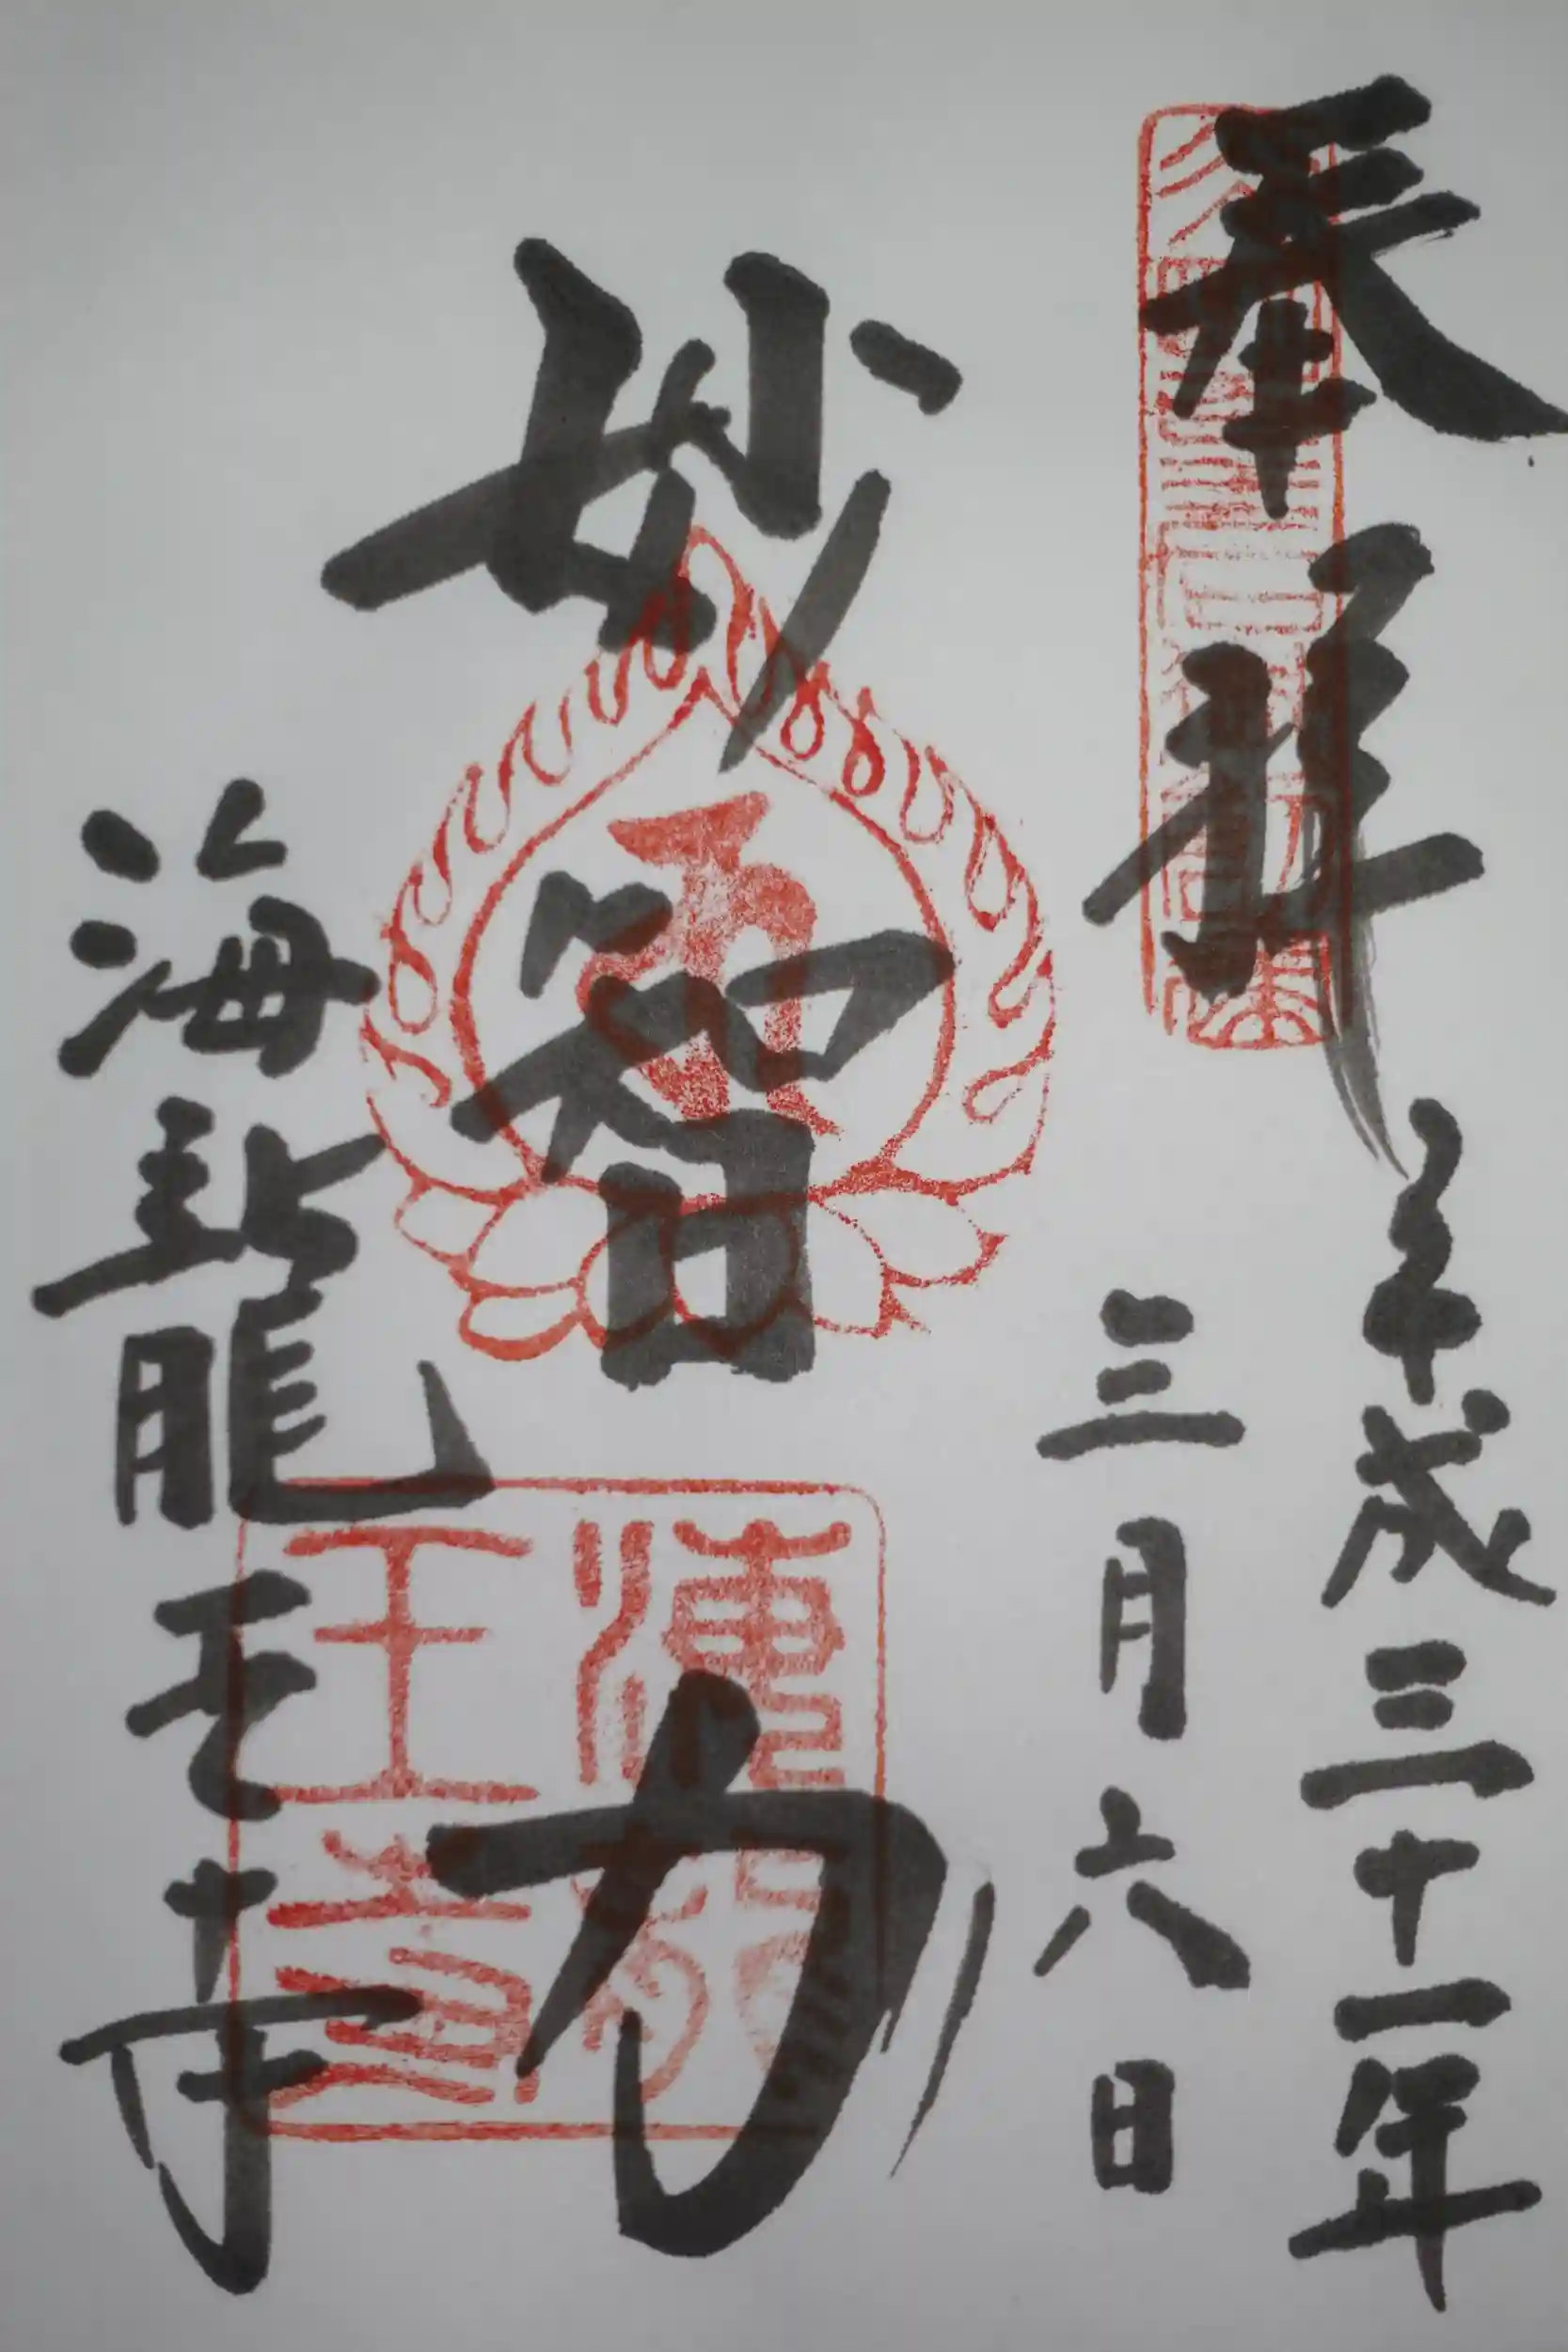 奉拝
平成三十一年
三月六日
妙智力
海龍王寺